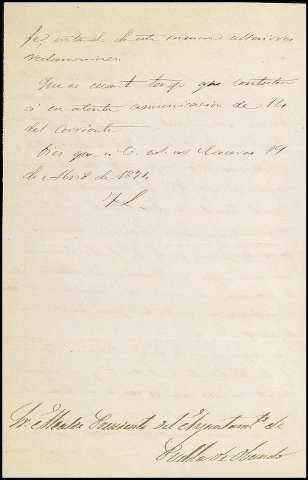 de esta manera ulteriores
reclamaciones.
Que es cuanto tengo que contestar
á su atenta comunicacion de 16
del corriente
Dios gue á V. Cáceres 19
de Abril de 1894
Sr. Alcalde Presidente del Ayuntamto de
Puebla de Obando